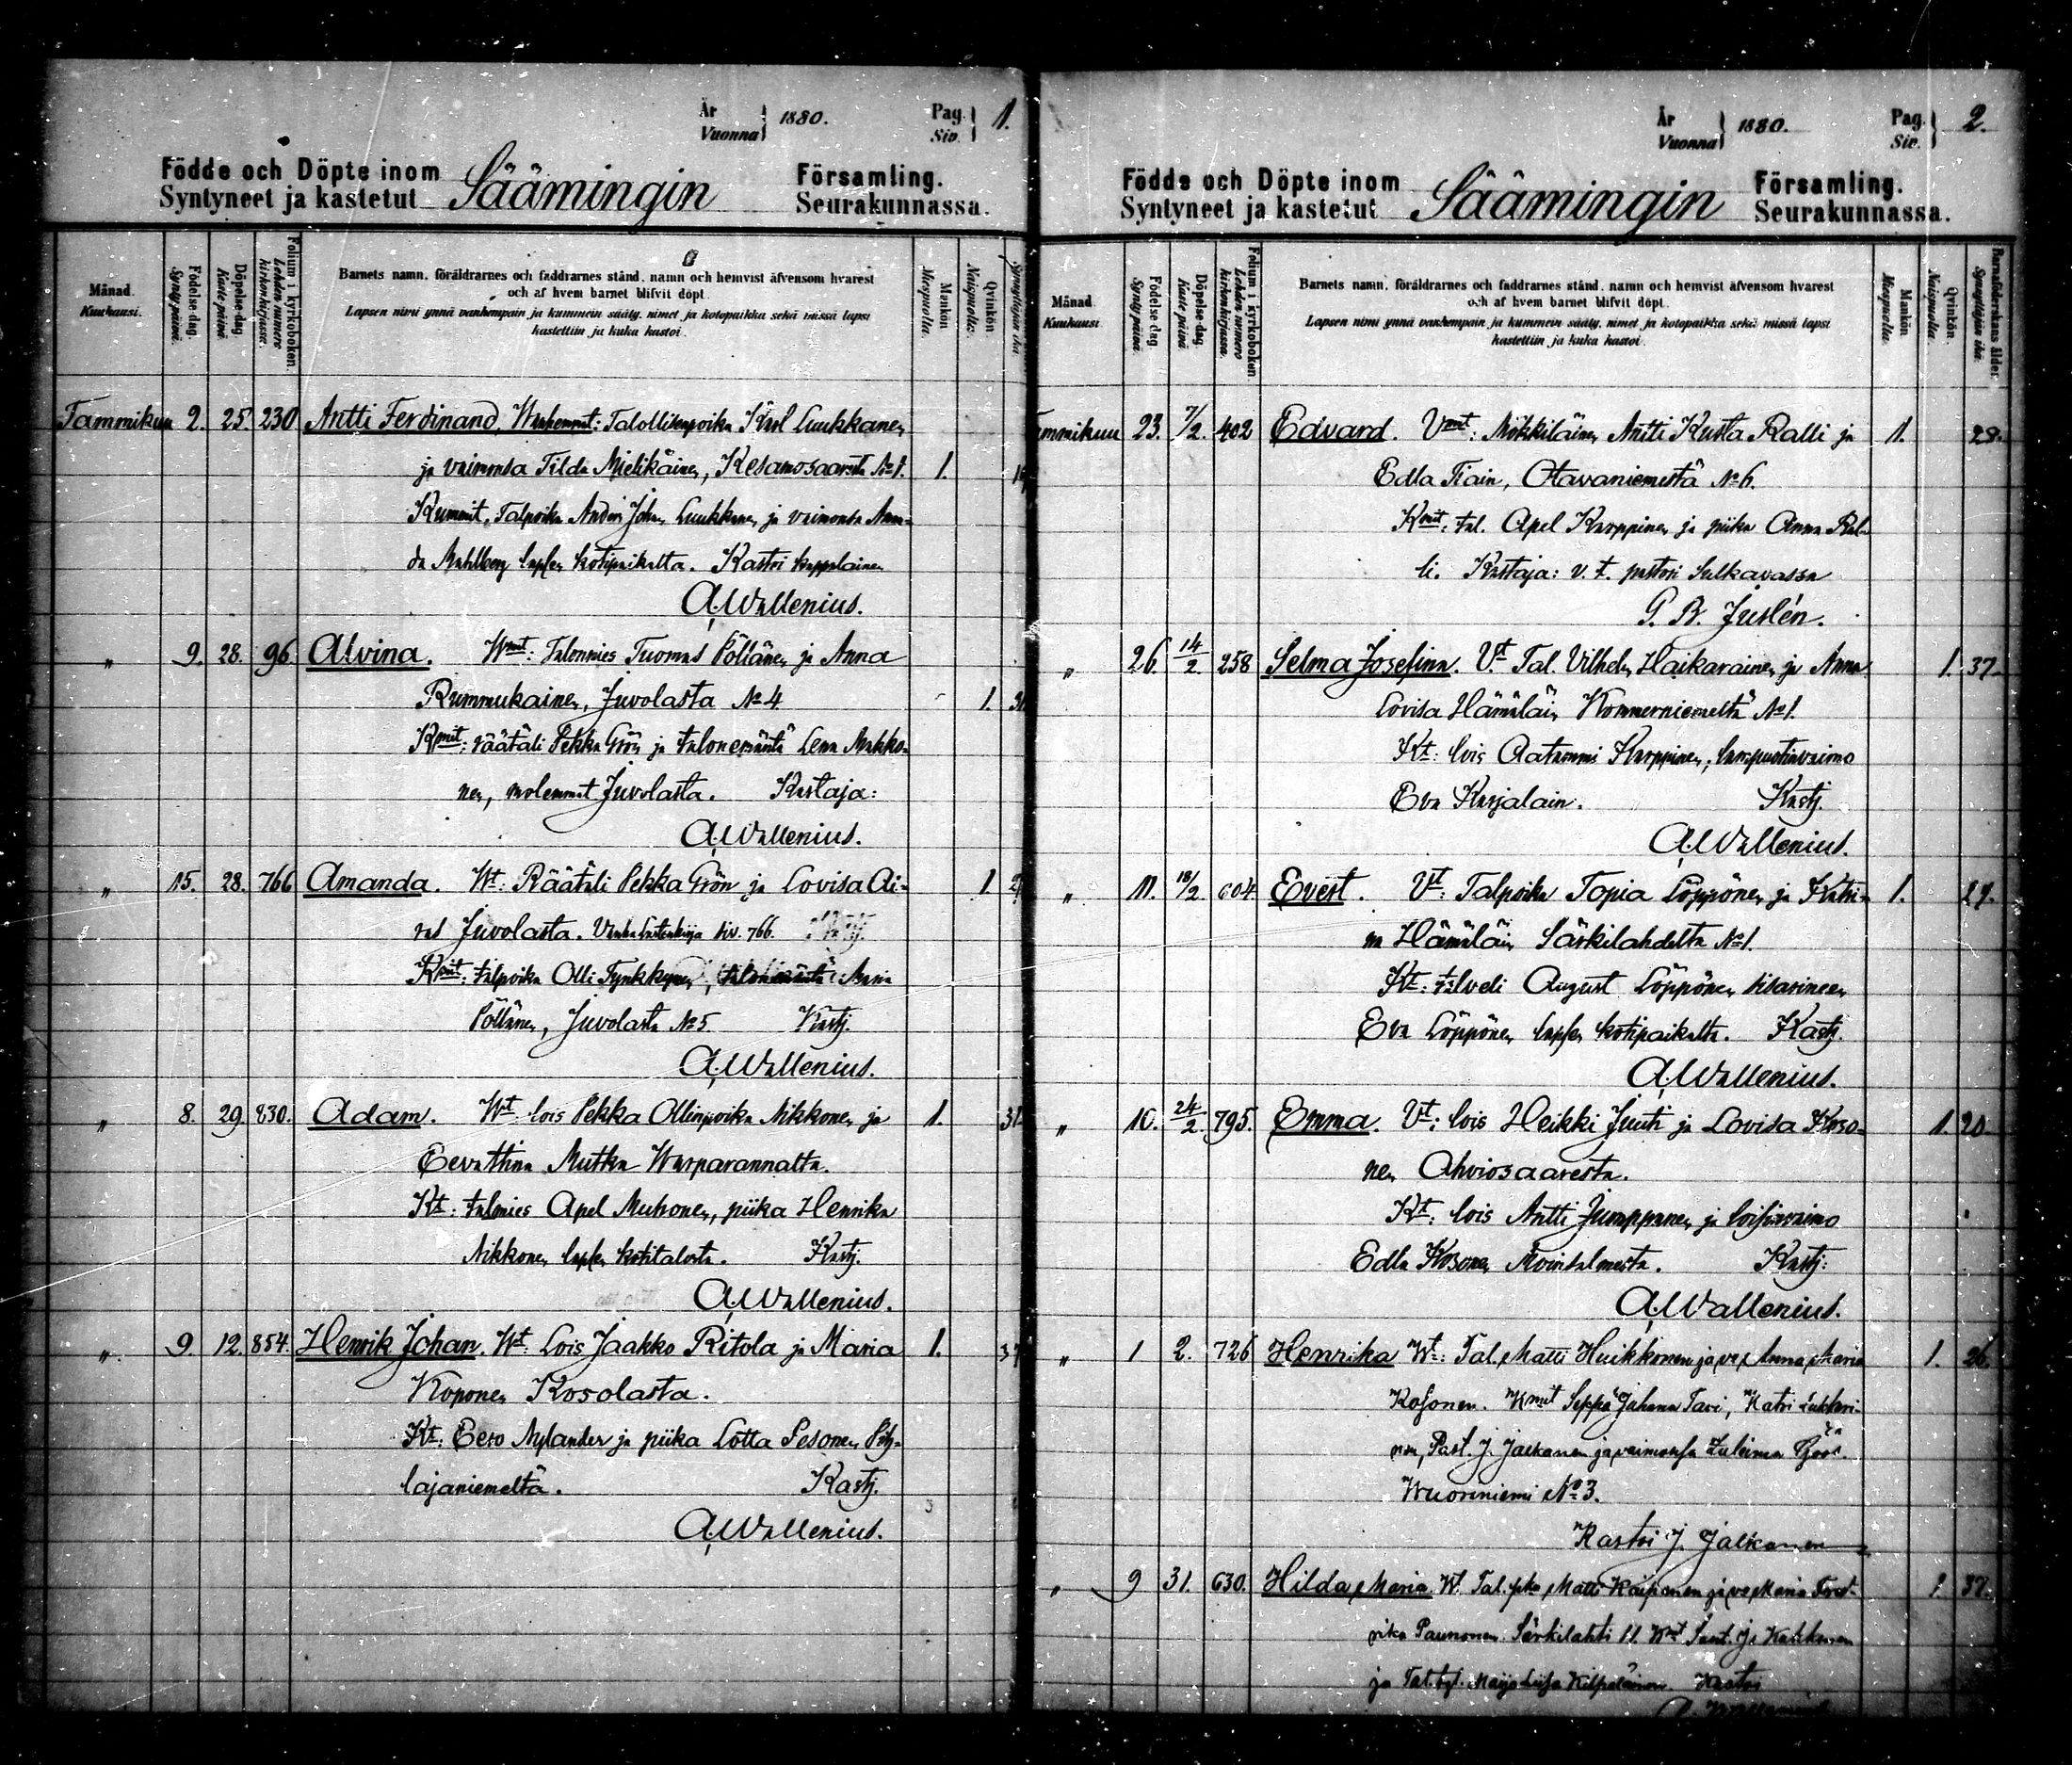 År
Vuonna 1880.
Pag.
Siv. 1.
Födde och Döpte inom
Syntyneet ja kastetut
Säämingin
Församling.
Seurakunnassa.
Månad.
Kuukausi.
Födelse-dag.
Synty päivä.
Döpelse-dag.
Kaste päivä.
Folium i kyrkoboken.
Lehden numero kirkonkirjassa.
Barnets namn, föräldrarnes och faddrarnes stånd, namn och hemvist äfvensom hvarest
och af hvem barnet blifvit döpt.
Lapsen nimi ynnä vanhempain ja kummein sääty, nimet ja kotopaikka sekä missä lapsi
kastettiin ja kuka kastoi.
Mankön
Miespuolia.
Qvinkön
Naispuolia.
Synnyttäjän ikä.
Tammikuu 2. 25. 230 Antti Ferdinand. Wanhemmat: Talollisenpoika Karl Luukkanen
ja vaimonsa Tilda Mielikäinen, Kesamosaaresta No 1. 1.
Kummit, Talpoika Anders Johan Luukkanen ja vaimonsa Aman-
da Mahlberg lapsen kotipaikalta. Kastoi kappalainen
A. Wallenius.
" 9. 28. 96 Alvina. Wmt: Talonmies Tuomas Pöllänen ja Anna
Rummukainen, Juvolasta No 4 1.
Kmit: räätäli Pekka Grön ja talonemäntä Lena Makko-
nen, molemmat Juvolasta. Kastaja:
A. Wallenius.
" 15. 28. 766 Amanda. Wt: Räätäli Pekka Grön ja Lovisa Ai- 1.
ras Juvolasta. siv. 766.
Kmit: talpoika Olli Tynkkynen, talonemäntä Maria
Pöllänen, Juvolasta No 5 Kastj.
A. Wallenius.
" 8. 29. 830. Adam. Wt lois Pekka Ollinpoika Nikkonen ja 1. 31.
Eevastiina Mutka Warparannalta.
Kt: talmies Apel Muhonen, piika Henrika
Nikkonen lapsen kotitalosta. Kastj.
A. Wallenius.
" 9. 12. 854. Henrik Johan. Wt. Lois Jaakko Ritola ja Maria 1.
Koponen Kosolasta.
Kt: Eero Nylander ja piika Lotta Pesonen Pih-
lajaniemeltä. Kastj.
A. Wallenius.
År
Vuonna 1880.
Pag.
Siv. 2.
Födde och Döpte inom
Syntyneet ja kastetut
Säämingin
Församling.
Seurakunnassa.
Månad.
Kuukausi
Födelse dag
Synty päivä
Döpelse-dag.
Kaste päivä
Folium i kyrkoboken
Lehden numero kirkonkirjassa.
Barnets namn, föräldrarnes och faddrarnes stånd, namn och hemvist äfvensom hvarest
och af hvem barnet blifvit döpt.
Lapsen nimi ynnä vanhempain ja kummein sääty, nimet ja kotopaikka sekä missä lapsi
kastettiin ja kuka kastoi.
Mankön
Miespuolia.
Qvinkön.
Naispuolia.
Barnaföderskans ålder.
Synnyttäjän ikä.
Tammikuu 23. 7/2. 402 Edvard. Vmt: Mökkiläinen Antti Kusta Ralli ja 1. 29.
Edla Tiain, Otavaniemestä No 6.
Kmit: tal. Apel Karppinen ja piika Anna Ral-
li. Kastaja: v. t. pastori Sulkavassa
G. B. Juslén.
" 26. 14/2. 258 Selma Josefina. Vt Tal. Vilhelm Haikarainen ja Anna 1. 37.
Lovisa Hämäläin Kommerniemeltä No 1.
Kt: lois Aatammi Karppinen, lampuotinvaimo
Eva Karjalain. Kastj.
A. Wallenius.
" 11. 18/2. 604. Evert. Vt: Talpoika Topia Löppönen ja Katri- 1. 29.
na Hämäläin Särkilahdelta No 1.
Kt: talveli August Löppönen sisarineen
Eva Löppönen lapsen kotipaikalta. Kastj.
A. Wallenius.
" 10. 24/2. 795. Emma. Vt: lois Heikki Juuti ja Lovisa Koso- 1. 20
nen Ahviosaaresta.
Kt: lois Antti Jumppanen ja loisinvaimo
Edla Kosonen Kastj:
A. Wallenius.
" 1 2. 726 Henrika Wt: Tal. Matti Huikkonen ja vo Anna Maria 1. 26.
Kosonen. Kmit Seppä Juhana Tari, Katri
nen, Past. J. Jalkanen ja vaimonsa
Wuoriniemi No 3.
Kastoi J. Jalkanen
" 9 31. 630. Hilda Maria. Wt. Tal. pka Matti Kaiponen ja vo Maria Fred- 1. 37.
rika Paunonen. Särkilahti 11 Kmt
ja Tal. tyt. Maija Liisa Kilpeläinen. Kastoi
A. Wallenius